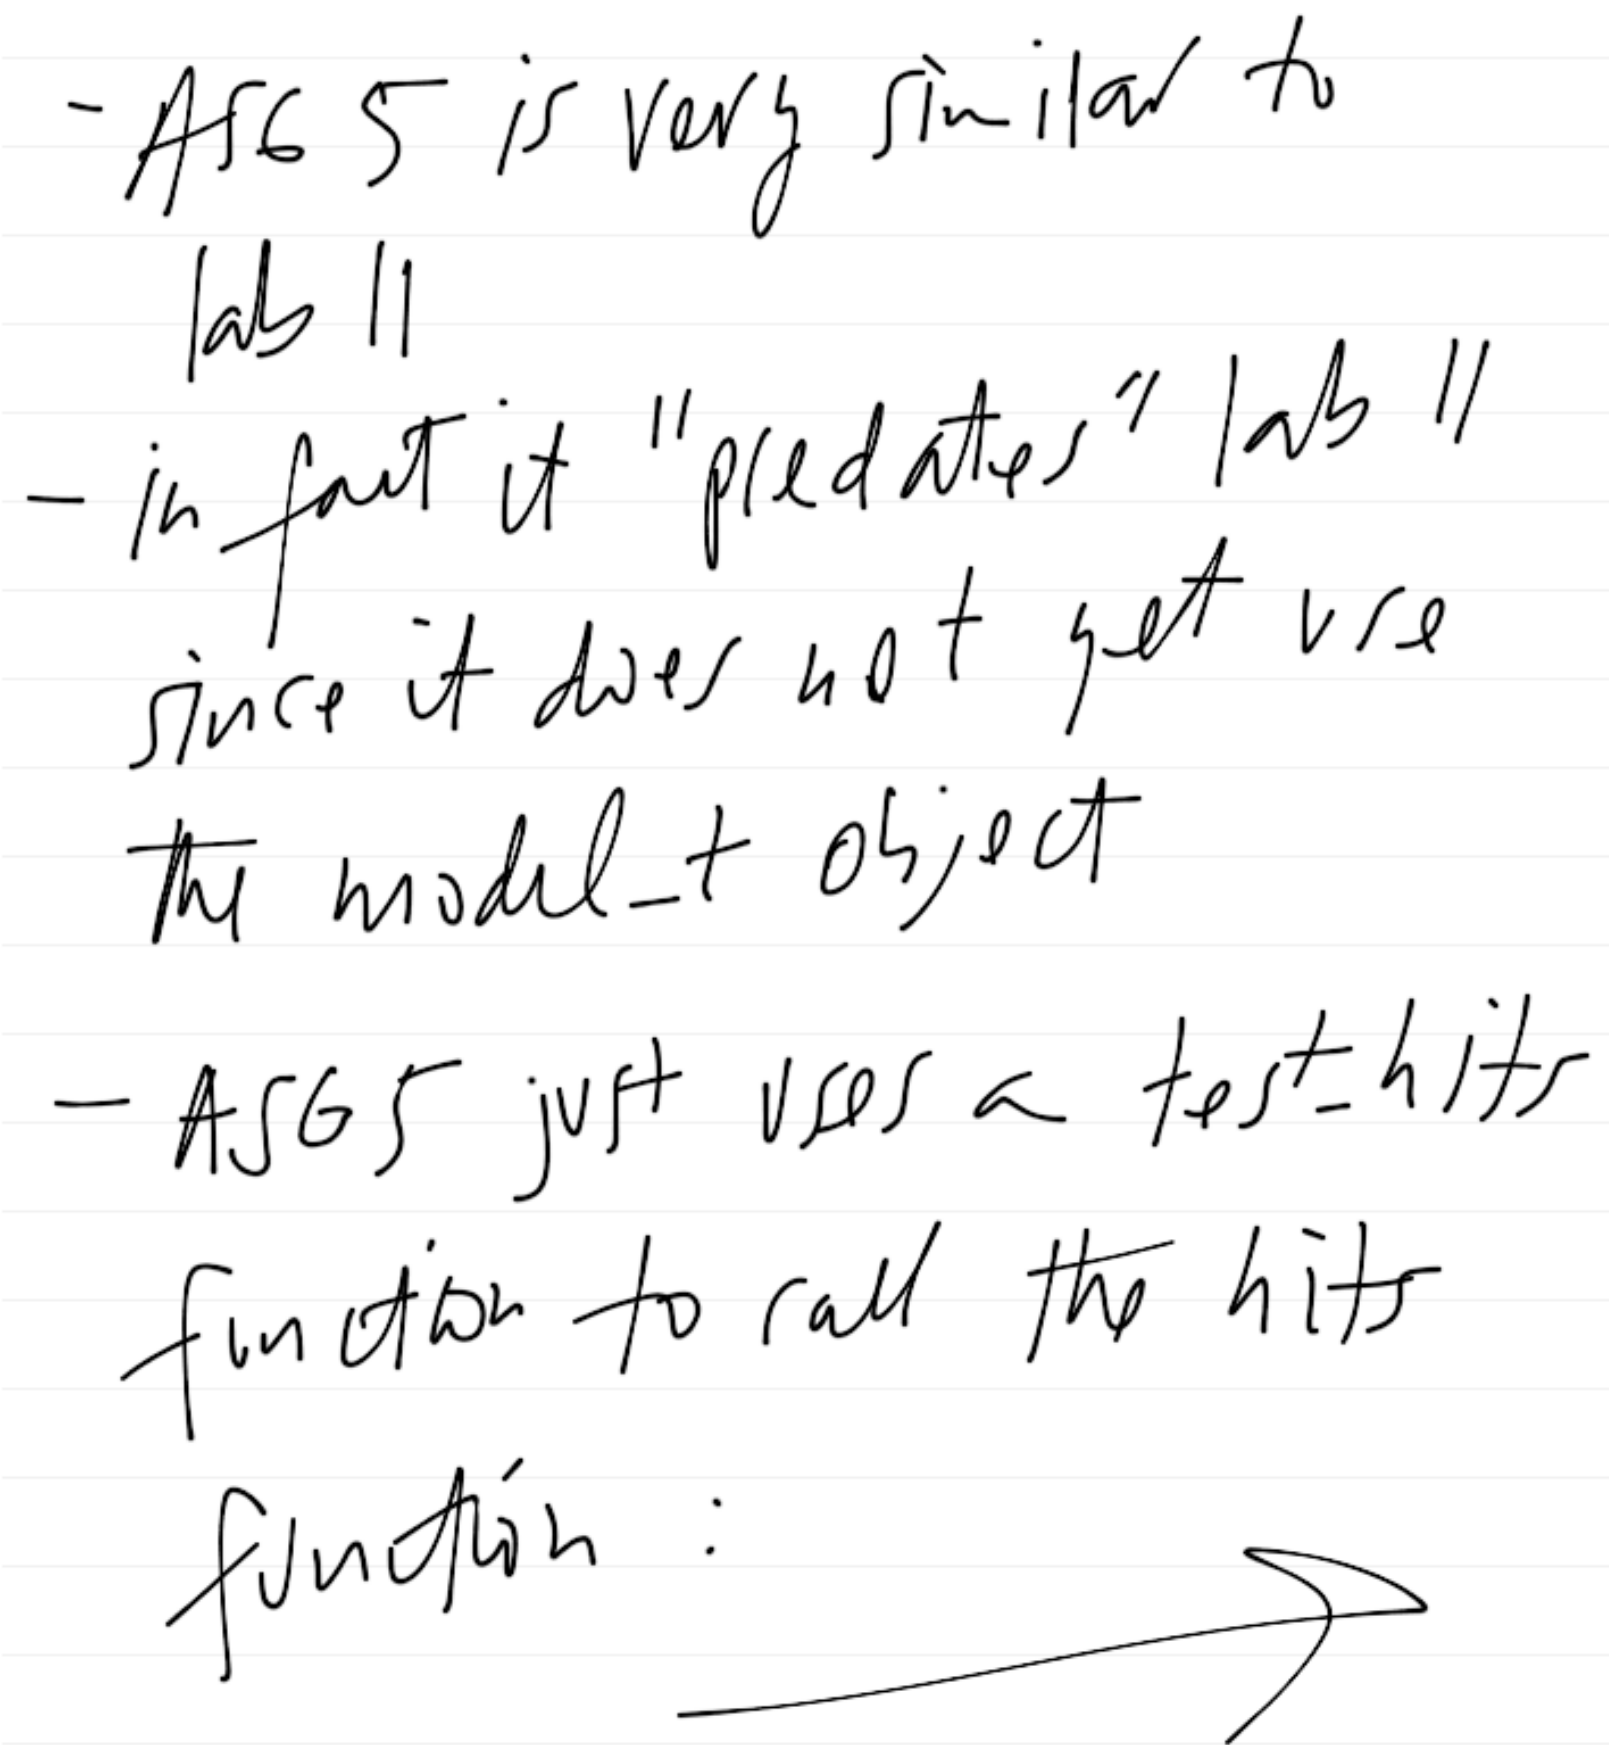 - ASG 5 is very similar to
lab 11
- in fact it "predates" lab 11
since it does not yet use
the model_t object
- ASG 5 just uses a test_hits
function to call the hits
function :